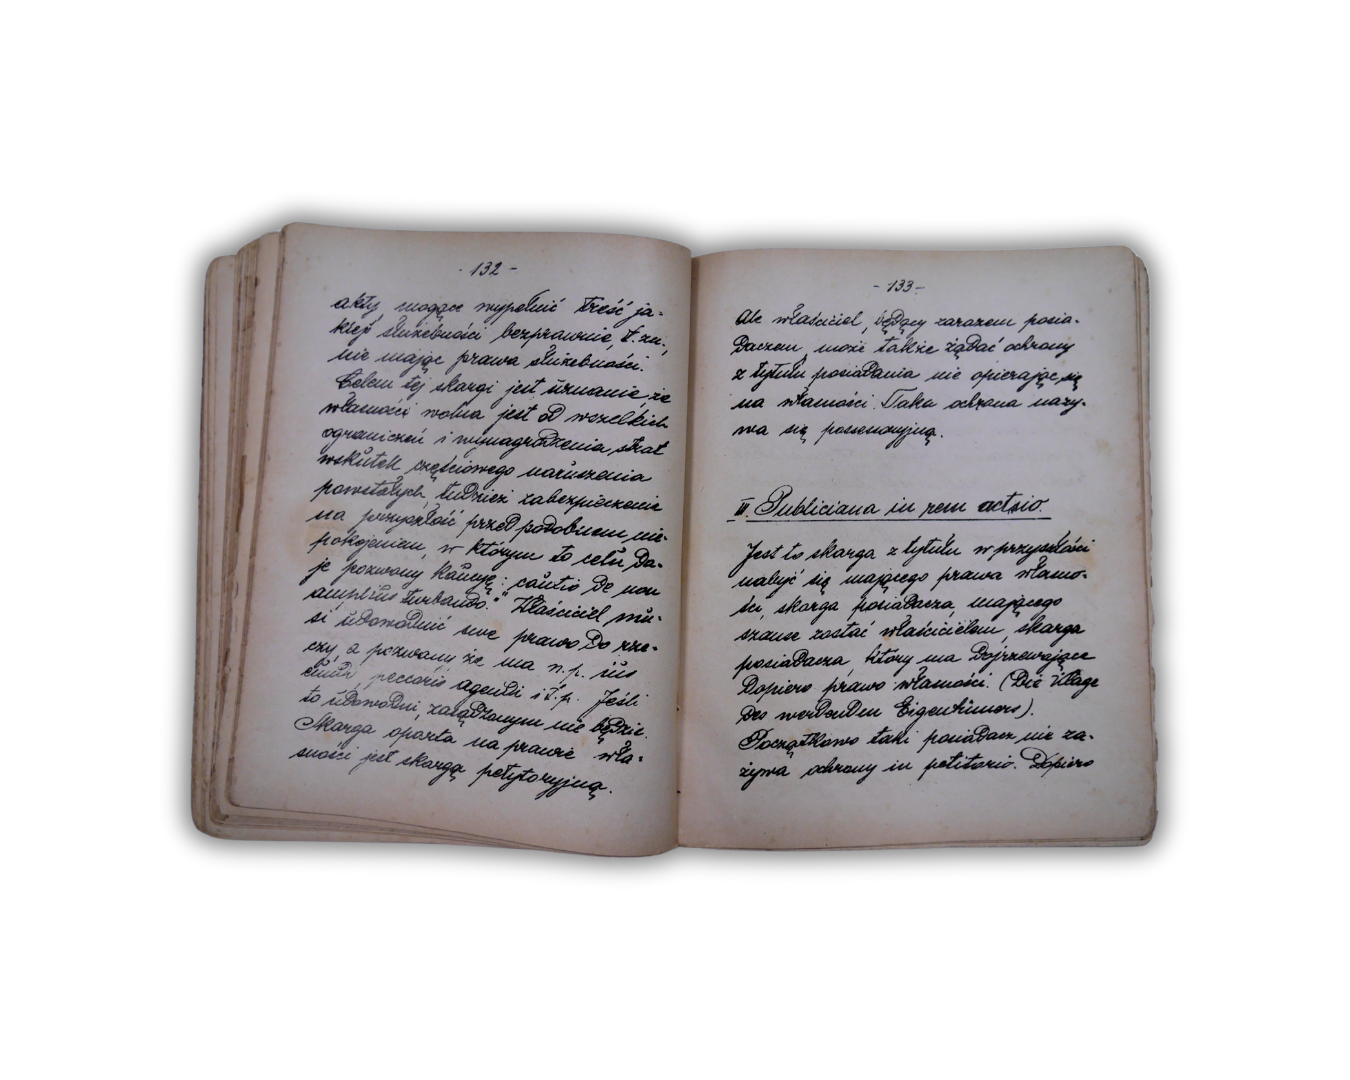 - 132 -
akty, mogące wypełnić treść ja-
kiejś służebności bezprawnie, t. zn.,
nie mając prawa służebności.
Celem tej skargi jest uznanie, że
własność wolna jest od wszelkich
ograniczeń i wynagrodzenia strat
wskutek częściowego naruszenia
powstałych, tudzież zabezpieczenie
na przyszłość przed podobnem nie-
pokojeniem, w którym to celu da-
je pozwany kaucyę: „cautio de non
amplius turbando." Właściciel mu-
si udowodnić swe prawo do rze-
czy, a pozwany że ma n. p. ius
eundi, peccoris agendi i t. p. Jeśli
to udowodni, zasądzonym nie będzie.
Skarga oparta na prawie wła-
sności jest skargą petytoryjną.
- 133 -
Ale właściciel, będący zarazem posia-
daczem, może także żądać ochrony
z tytułu posiadania nie opierając się
na własności. Taka ochrona nazy-
wa się possessoryjną.
III. Publiciana in rem actio.
Jest to skarga z tytułu w przyszłości
nabyć się mającego prawa własno-
ści, skarga posiadacza, mającego
szanse zostać właścicielem, skarga
posiadacza, który ma dojrzewające
dopiero prawo własności. (Die Klage
des werdenden Eigentümers).
Początkowo taki posiadacz nie za-
żywa ochrony in petitorio. Dopiero